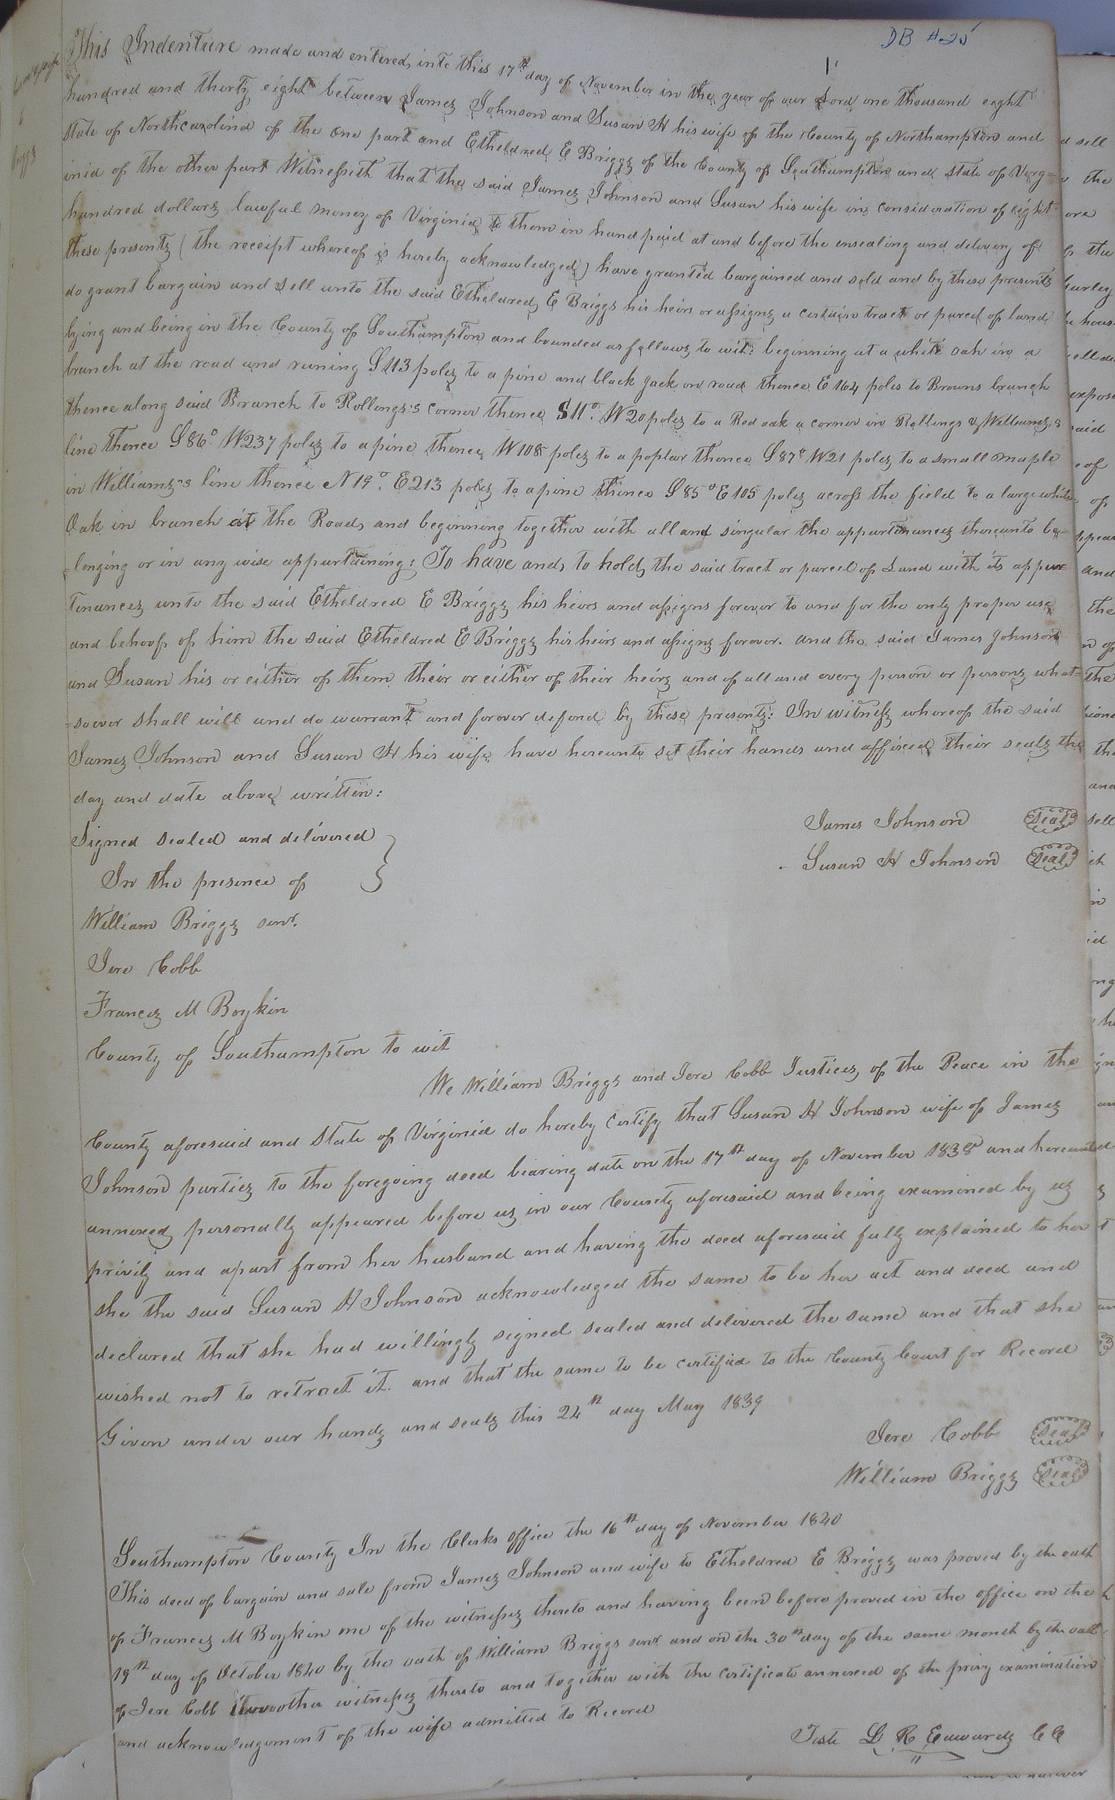 DB #25
1
This Indenture made and entered into this 17th day of November in the year of our Lord one thousand eight
hundred and thirty eight between James Johnson and Susan H his wife of the County of Northampton and
State of Northcarolina of the one part and Etheldred E Briggs of the County of Southampton and state of Virg=
inia of the other part Witnesseth that the said James Johnson and Susan his wife in consideration of eight
hundred dollars lawful money of Virginia to them in hand paid at and before the ensealing and delivery of
these presents (the receipt whereof is hereby acknowledged) have granted bargained and sold and by these presents
do grant bargain and sell unto the said Etheldred E Briggs his heirs or assigns a certain tract or parcel of land
lying and being in the County of Southampton and bounded as follows to wit: beginning at a white oak in a
branch at the road and runing S113 poles to a pine and black jack on road thence E 164 poles to Browns branch
thence along said Branch to Rollings's corner thence S11° W20 poles to a Red oak a corner in Rollings & Williams's
line thence S86° W237 poles to a pine thence W108 poles to a poplar thence S87° W21 poles to a small maple
in Williams's line thence N19° E213 poles to a pine thence S85° E105 poles across the field to a large white
Oak in branch at the Road and beginning together with all and singular the appurtinances thereunto be=
=longing or in any wise appurtaining: To have and to hold the said tract or parcel of Land with its appur
tinances unto the said Etheldred E Briggs his heirs and assigns forever to and for the only proper use
and behoof of him the said Etheldred E Briggs his heirs and assigns forever. and the said James Johnson
and Susan his or either of them their or either of their heirs and of all and every person or persons what=
=soever shall will and do warrant and forever defend by these presents: In witness whereof the said
James Johnson and Susan H his wife have hereunto set their hands and affixed their seals the
day and date above written:
Signed sealed and delivered
In the presence of
James Johnson Seal
Susan H Johnson Seal
William Briggs senr.
Jere Cobb
Frances M Boykin
County of Southampton to wit
We William Briggs and Jere Cobb Justices of the Peace in the
County aforesaid and State of Virginia do hereby certify that Susan H Johnson wife of James
Johnson parties to the foregoing deed bearing date on the 17th day of November 1838 and hereunto
annexed personally appeared before us in our County aforesaid and being examoned by us
privily and apart from her husband and having the deed aforesaid fully explained to her
she the said Susan H Johnson acknowledged the same to be her act and deed and
declared that she had willingly signed sealed and delivered the same and that she
wished not to retract it. and that the same to be certified to the County Court for Record
Given under our hands and seals this 24th day May 1839
Jere Cobb Seal
William Briggs Seal
Southampton County In the Clerks office the 16th day of November 1840
This deed of bargain and sale from James Johnson and wife to Etheldred E Briggs was proved by the oath
of Frances M Boykin one of the witnesses thereto and having been before proved in the office on the
19th day of October 1840 by the oath of William Briggs senr and on the 30th day of the same month by the oath
of Jere Cobb two other witnesses thereto and together with the certificate annexed of the privy examination
and acknowledgement of the wife admitted to Record
Teste L R Edwards CC